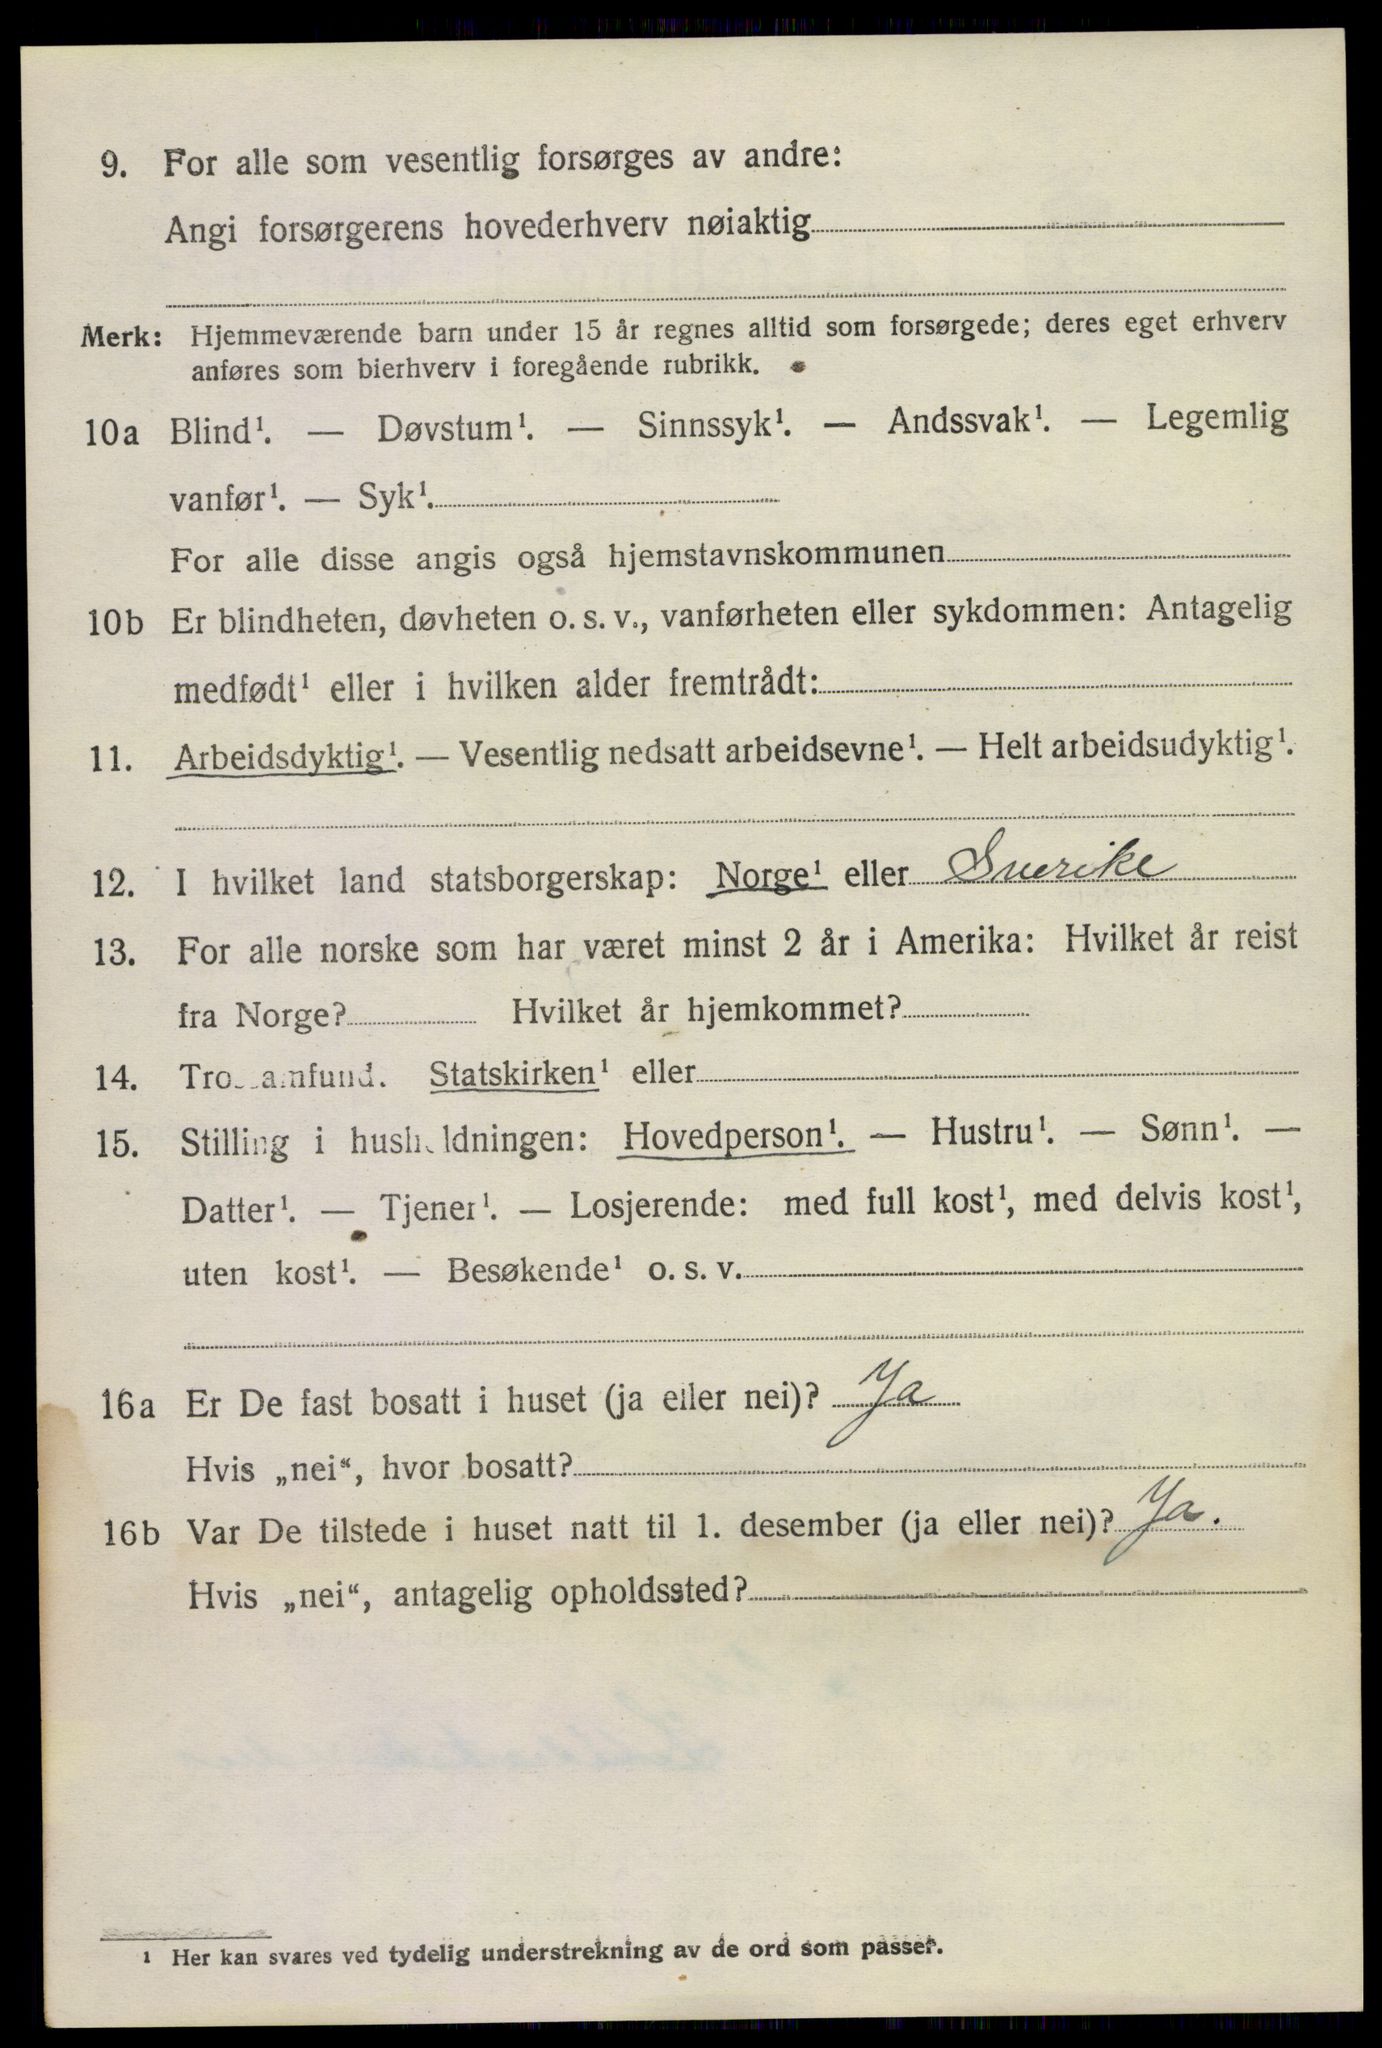 9. For alle som vesentlig forsørges av andre:
Angi forsørgerens hovederhverv nøiaktig
Merk: Hjemmeværende barn under 15 år regnes alltid som forsørgede; deres eget erhverv
anføres som bierhverv i foregående rubrikk.
10a Blind¹. — Døvstum¹. — Sinnssyk¹. — Andssvak¹. — Legemlig
vanfør¹. — Syk¹.
For alle disse angis også hjemstavnskommunen
10b Er blindheten, døvheten o. s. v., vanførheten eller sykdommen: Antagelig
medfødt¹ eller i hvilken alder fremtrådt:
11. Arbeidsdyktig¹. — Vesentlig nedsatt arbeidsevne¹. — Helt arbeidsudyktig¹.
12. I hvilket land statsborgerskap: Norge¹ eller Sverike
13. For alle norske som har været minst 2 år i Amerika: Hvilket år reist
fra Norge? Hvilket år hjemkommet?
14. Trossamfund. Statskirken¹ eller
15. Stilling i husholdningen: Hovedperson¹. — Hustru¹. — Sønn¹. —
Datter¹. — Tjener¹. — Losjerende: med full kost¹, med delvis kost¹,
uten kost¹. — Besøkende¹ o. s. v.
16a Er De fast bosatt i huset (ja eller nei)? Ja
Hvis „nei“, hvor bosatt?
16b Var De tilstede i huset natt til 1. desember (ja eller nei)? Ja.
Hvis „nei“, antagelig opholdssted?
¹ Her kan svares ved tydelig understrekning av de ord som passer.